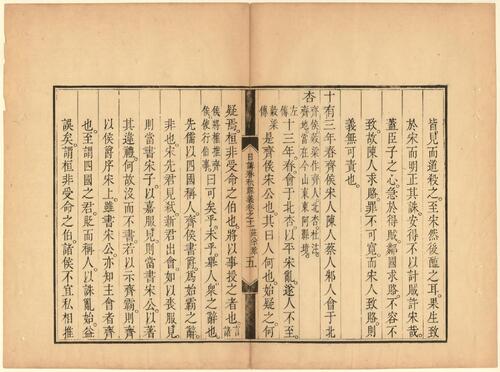 皆見而道校之至宋然後醢之耳果生致
於宋而明正其誅安得不以討賊許宋哉
蓋臣子之心急於得賊鄰國求賂不容不
致故陳人求賂罪不可寬而宋人致賂則
義無可責也
十有三年春齊侯宋人陳人蔡人邾人會于北
杏
齊侯穀梁作齊人北杏杜注
齊地當在今山東東阿縣境
左傳十三年春會于北杏以平宋亂遂人不至
穀梁傳是齊侯宋公也其曰人何也始疑之何
日講春秋解義卷之十一 五
疑焉桓非受命之伯也將以事授之者也言諸
侯將權推齊
侯使行伯事
曰可矣乎未乎舉人衆之辭也
先儒以四國稱人齊侯書爵爲始霸之辭
非也宋先君見弒新君出會如以喪服見
則當書宋子以嘉服見則當書宋公以著
其違禮何故沒而不書若以示齊霸則齊
以侯爵序宋上雖書宋公亦知主會者齊
也至謂四國之君貶而稱人以誅亂始益
誤矣謂桓非受命之伯諸侯不宜私相推